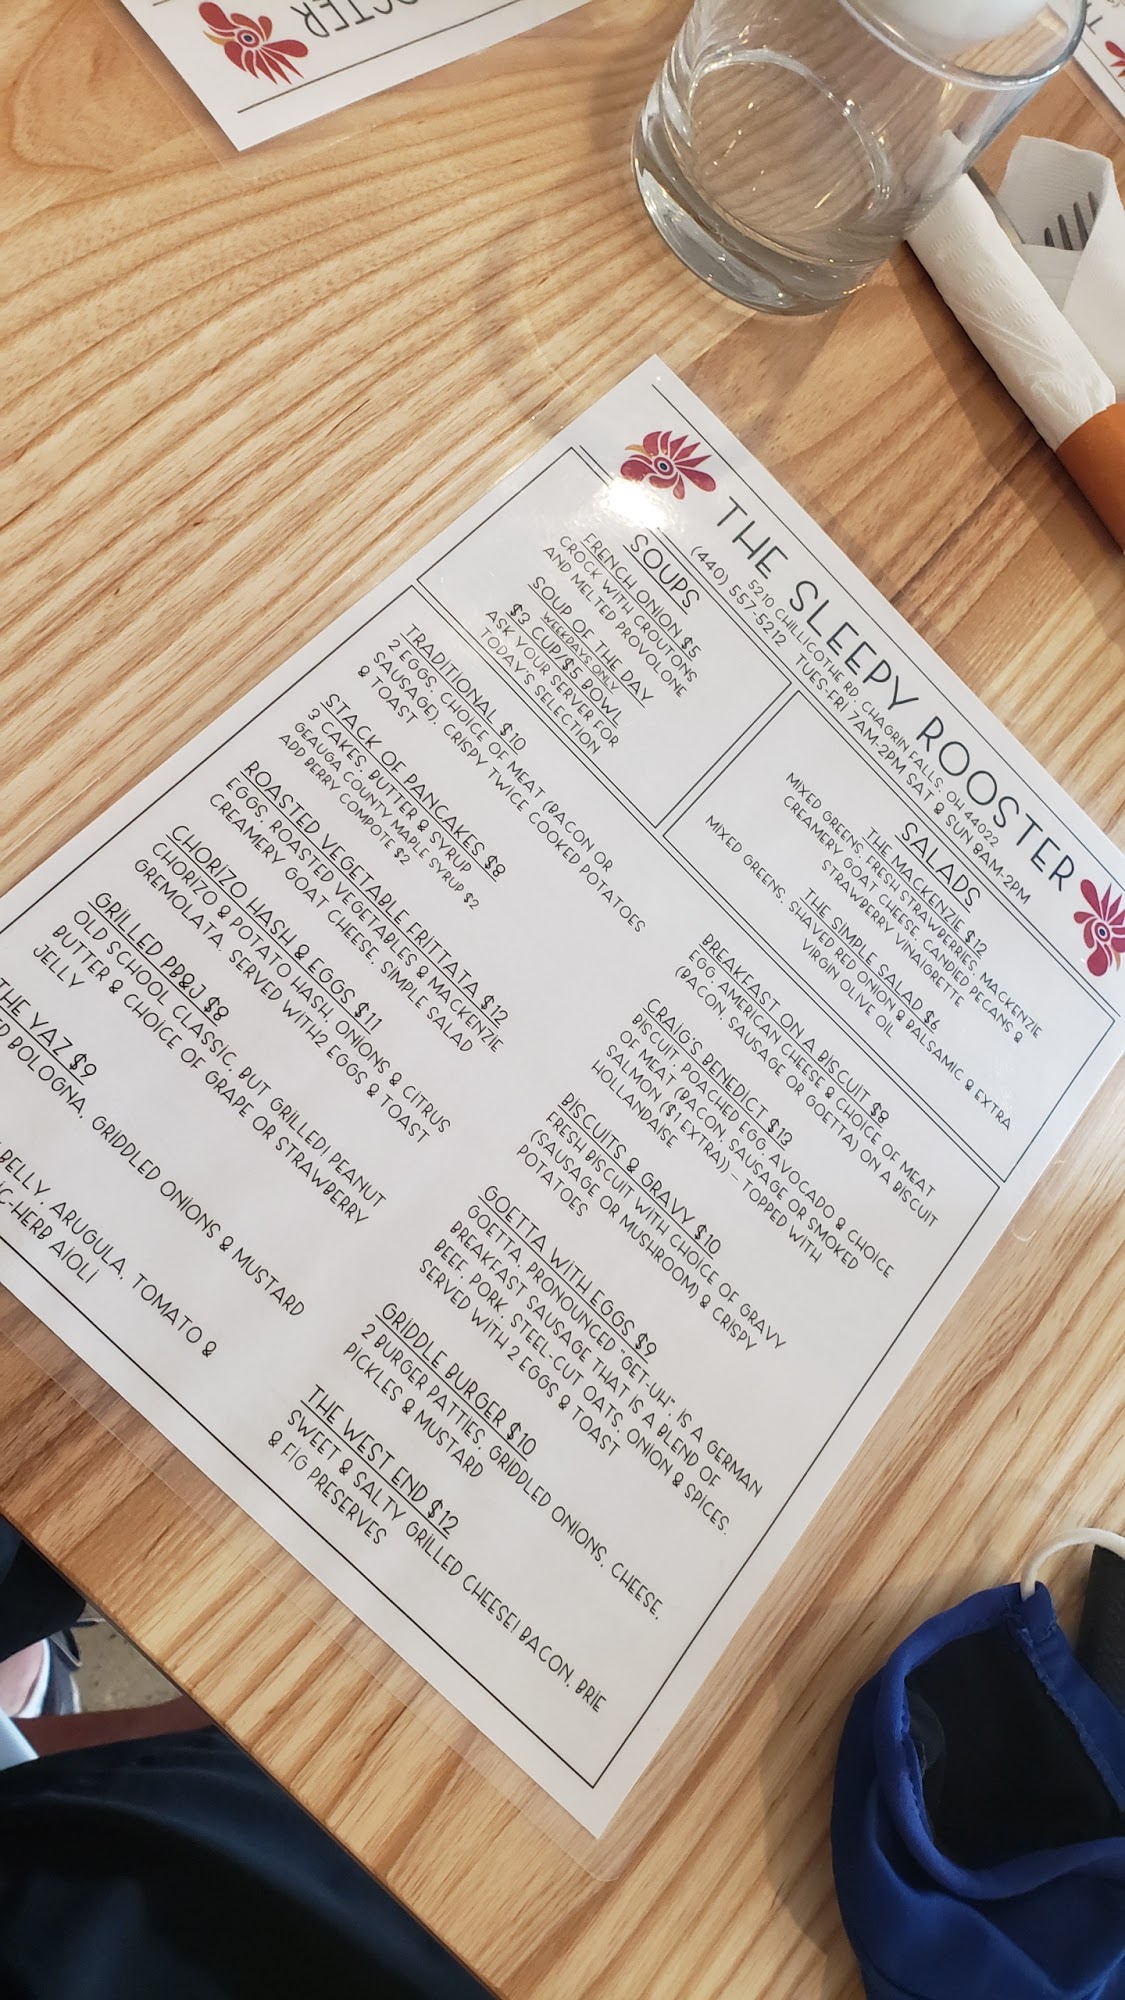 OSTER
THE SLEEPY ROOSTER
5210 CHILLICOTHE RD, CHAGRIN FALLS, OH 44022
(440) 557-5212 TUES-FRI 7AM-2PM SAT & SUN 8AM-2PM
SOUPS
FRENCH ONION $5
CROCK WITH CROUTONS
AND MELTED PROVOLONE
SOUP OF THE DAY
WEEKDAYS ONLY
$3 CUP/$5 BOWL
ASK YOUR SERVER FOR
TODAY'S SELECTION
SALADS
THE MACKENZIE $12
MIXED GREENS, FRESH STRAWBERRIES, MACKENZIE
CREAMERY GOAT CHEESE, CANDIED PECANS &
STRAWBERRY VINAIGRETTE
THE SIMPLE SALAD $6
MIXED GREENS, SHAVED RED ONION & BALSAMIC & EXTRA
VIRGIN OLIVE OIL
TRADITIONAL $10
2 EGGS, CHOICE OF MEAT (BACON OR
SAUSAGE), CRISPY TWICE COOKED POTATOES
& TOAST
STACK OF PANCAKES $8
3 CAKES, BUTTER & SYRUP
GEAUGA COUNTY MAPLE SYRUP $2
ADD BERRY COMPOTE $2
ROASTED VEGETABLE FRITTATA $12
EGGS, ROASTED VEGETABLES & MACKENZIE
CREAMERY GOAT CHEESE, SIMPLE SALAD
CHORIZO HASH & EGGS $11
CHORIZO & POTATO HASH, ONIONS & CITRUS
GREMOLATA. SERVED WITH2 EGGS & TOAST
GRILLED PB&J $8
OLD SCHOOL CLASSIC, BUT GRILLED! PEANUT
BUTTER & CHOICE OF GRAPE OR STRAWBERRY
JELLY
THE YAZ $9
BOLOGNA, GRIDDLED ONIONS & MUSTARD
BELLY, ARUGULA, TOMATO &
C-HERB AIOLI
BREAKFAST ON A BISCUIT $8
EGG, AMERICAN CHEESE & CHOICE OF MEAT
(BACON, SAUSAGE OR GOETTA) ON A BISCUIT
CRAIG'S BENEDICT $13
BISCUIT, POACHED EGG, AVOCADO & CHOICE
OF MEAT (BACON, SAUSAGE OR SMOKED
SALMON ($1 EXTRA)) – TOPPED WITH
HOLLANDAISE
BISCUITS & GRAVY $10
FRESH BISCUIT WITH CHOICE OF GRAVY
(SAUSAGE OR MUSHROOM) & CRISPY
POTATOES
GOETTA WITH EGGS $9
GOETTA, PRONOUNCED "GET-UH", IS A GERMAN
BREAKFAST SAUSAGE THAT IS A BLEND OF
BEEF, PORK, STEEL-CUT OATS, ONION & SPICES.
SERVED WITH 2 EGGS & TOAST
GRIDDLE BURGER $10
2 BURGER PATTIES, GRIDDLED ONIONS, CHEESE,
PICKLES & MUSTARD
THE WEST END $12
SWEET & SALTY GRILLED CHEESE! BACON, BRIE
& FIG PRESERVES